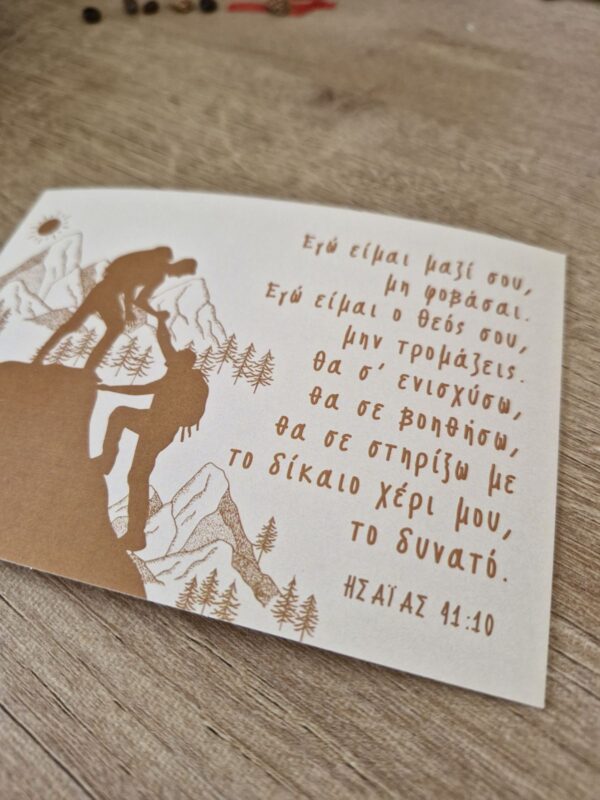 Εγώ είμαι μαζί σου,
μη φοβάσαι.
Εγώ είμαι ο θεός σου,
μην τρομάζεις.
θα σ' ενισχύσω,
θα σε βοηθήσω,
θα σε στηρίξω με
το δίκαιο χέρι μου,
το δυνατό.
ΗΣΑΪΑΣ 41:10